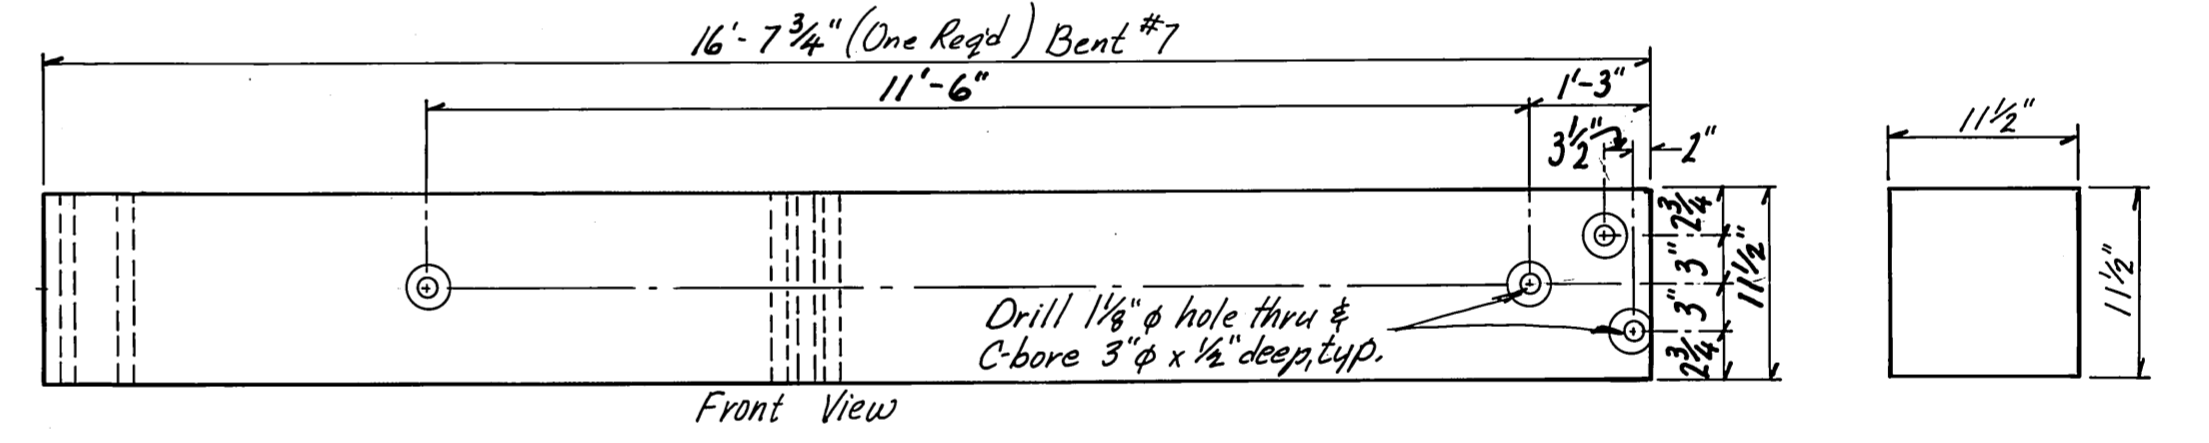 16'-7 3/4" (One Req'd) Bent #7
11'-6"
1'-3"
3 1/2"
2"
11 1/2"
2 3/4"
3"
3"
2 3/4
11 1/2"
11 1/2"
Drill 1 1/8" ϕ hole thru &
C-bore 3"ϕ x 1/2" deep, typ.
Front View